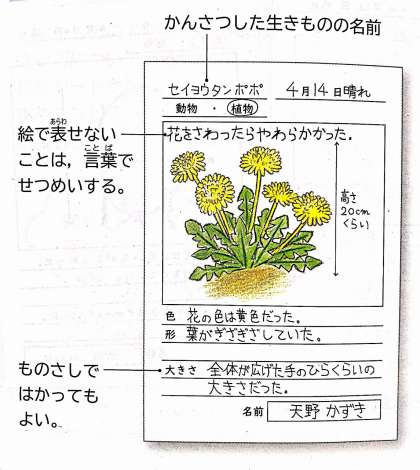 かんさつした生きものの名前
セイヨウタンポポ 4月14日晴れ
動物・植物
絵で表せない
ことは，言葉で
せつめいする。
あらわ
ことば
花をさわったらやわらかかった。
高さ
20cm
くらい
色 花の色は黄色だった。
形 葉がぎざぎざしていた。
ものさしで
はかっても
よい。
大きさ 全体が広げた手のひらくらいの
大きさだった。
名前 天野 かずき